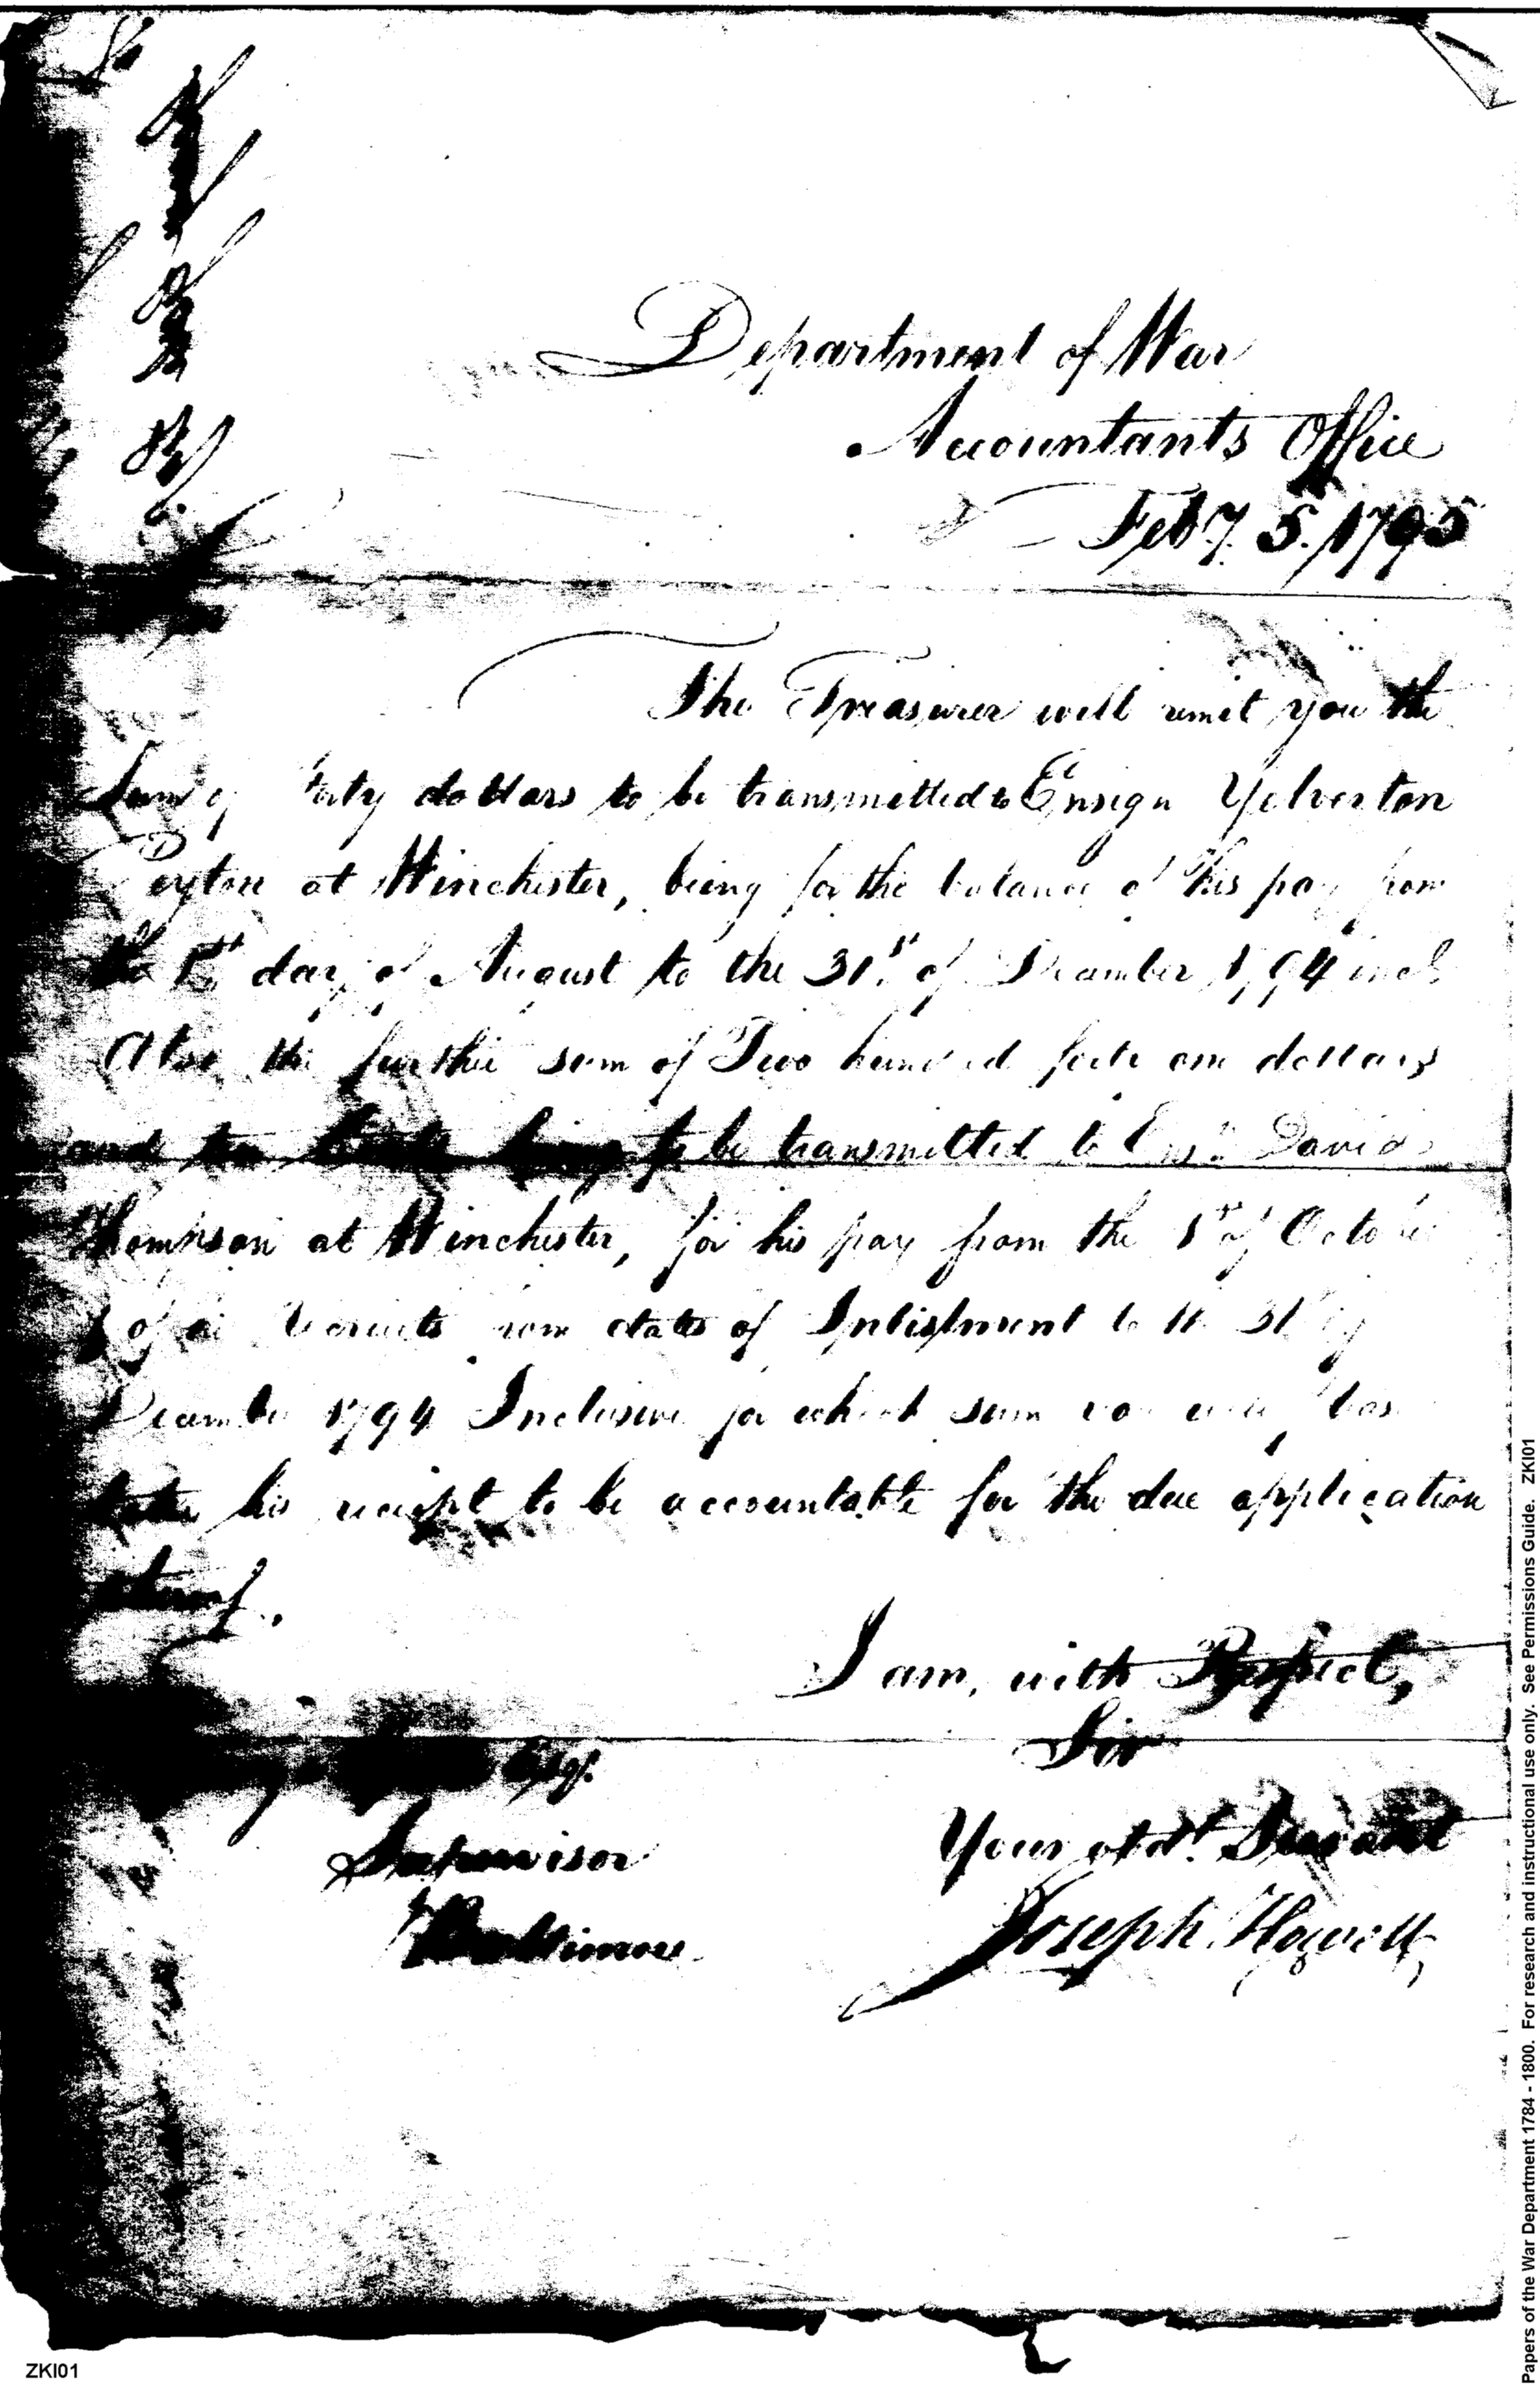 Department of War
Accountants Office
Feby. 5. 1795
The Treasurer will remit you the
Sum of dollars to be transmitted to Ensign Yelverton
Peyton at Winchester, being for the balance of his pay from
the 1st day of August to the 31st of December 1794 incl.
Also the further sum of Two hundred forty one dollars
and ten to be transmitted to Ensn. David
Thompson at Winchester, for his pay from the 1st of October
& of Recruits from dates of Inlistment to the 31st of
December 1794 Inclusive for which sum you will
take his receipt to be accountable for the due application
thereof.
I am, with Respect,
Sir
Esqr.
Supervisor
Baltimore
Your obdt. Servant
Joseph Howell
Papers of the War Department 1784 - 1800. For research and instructional use only. See Permissions Guide. ZKI01
ZKI01